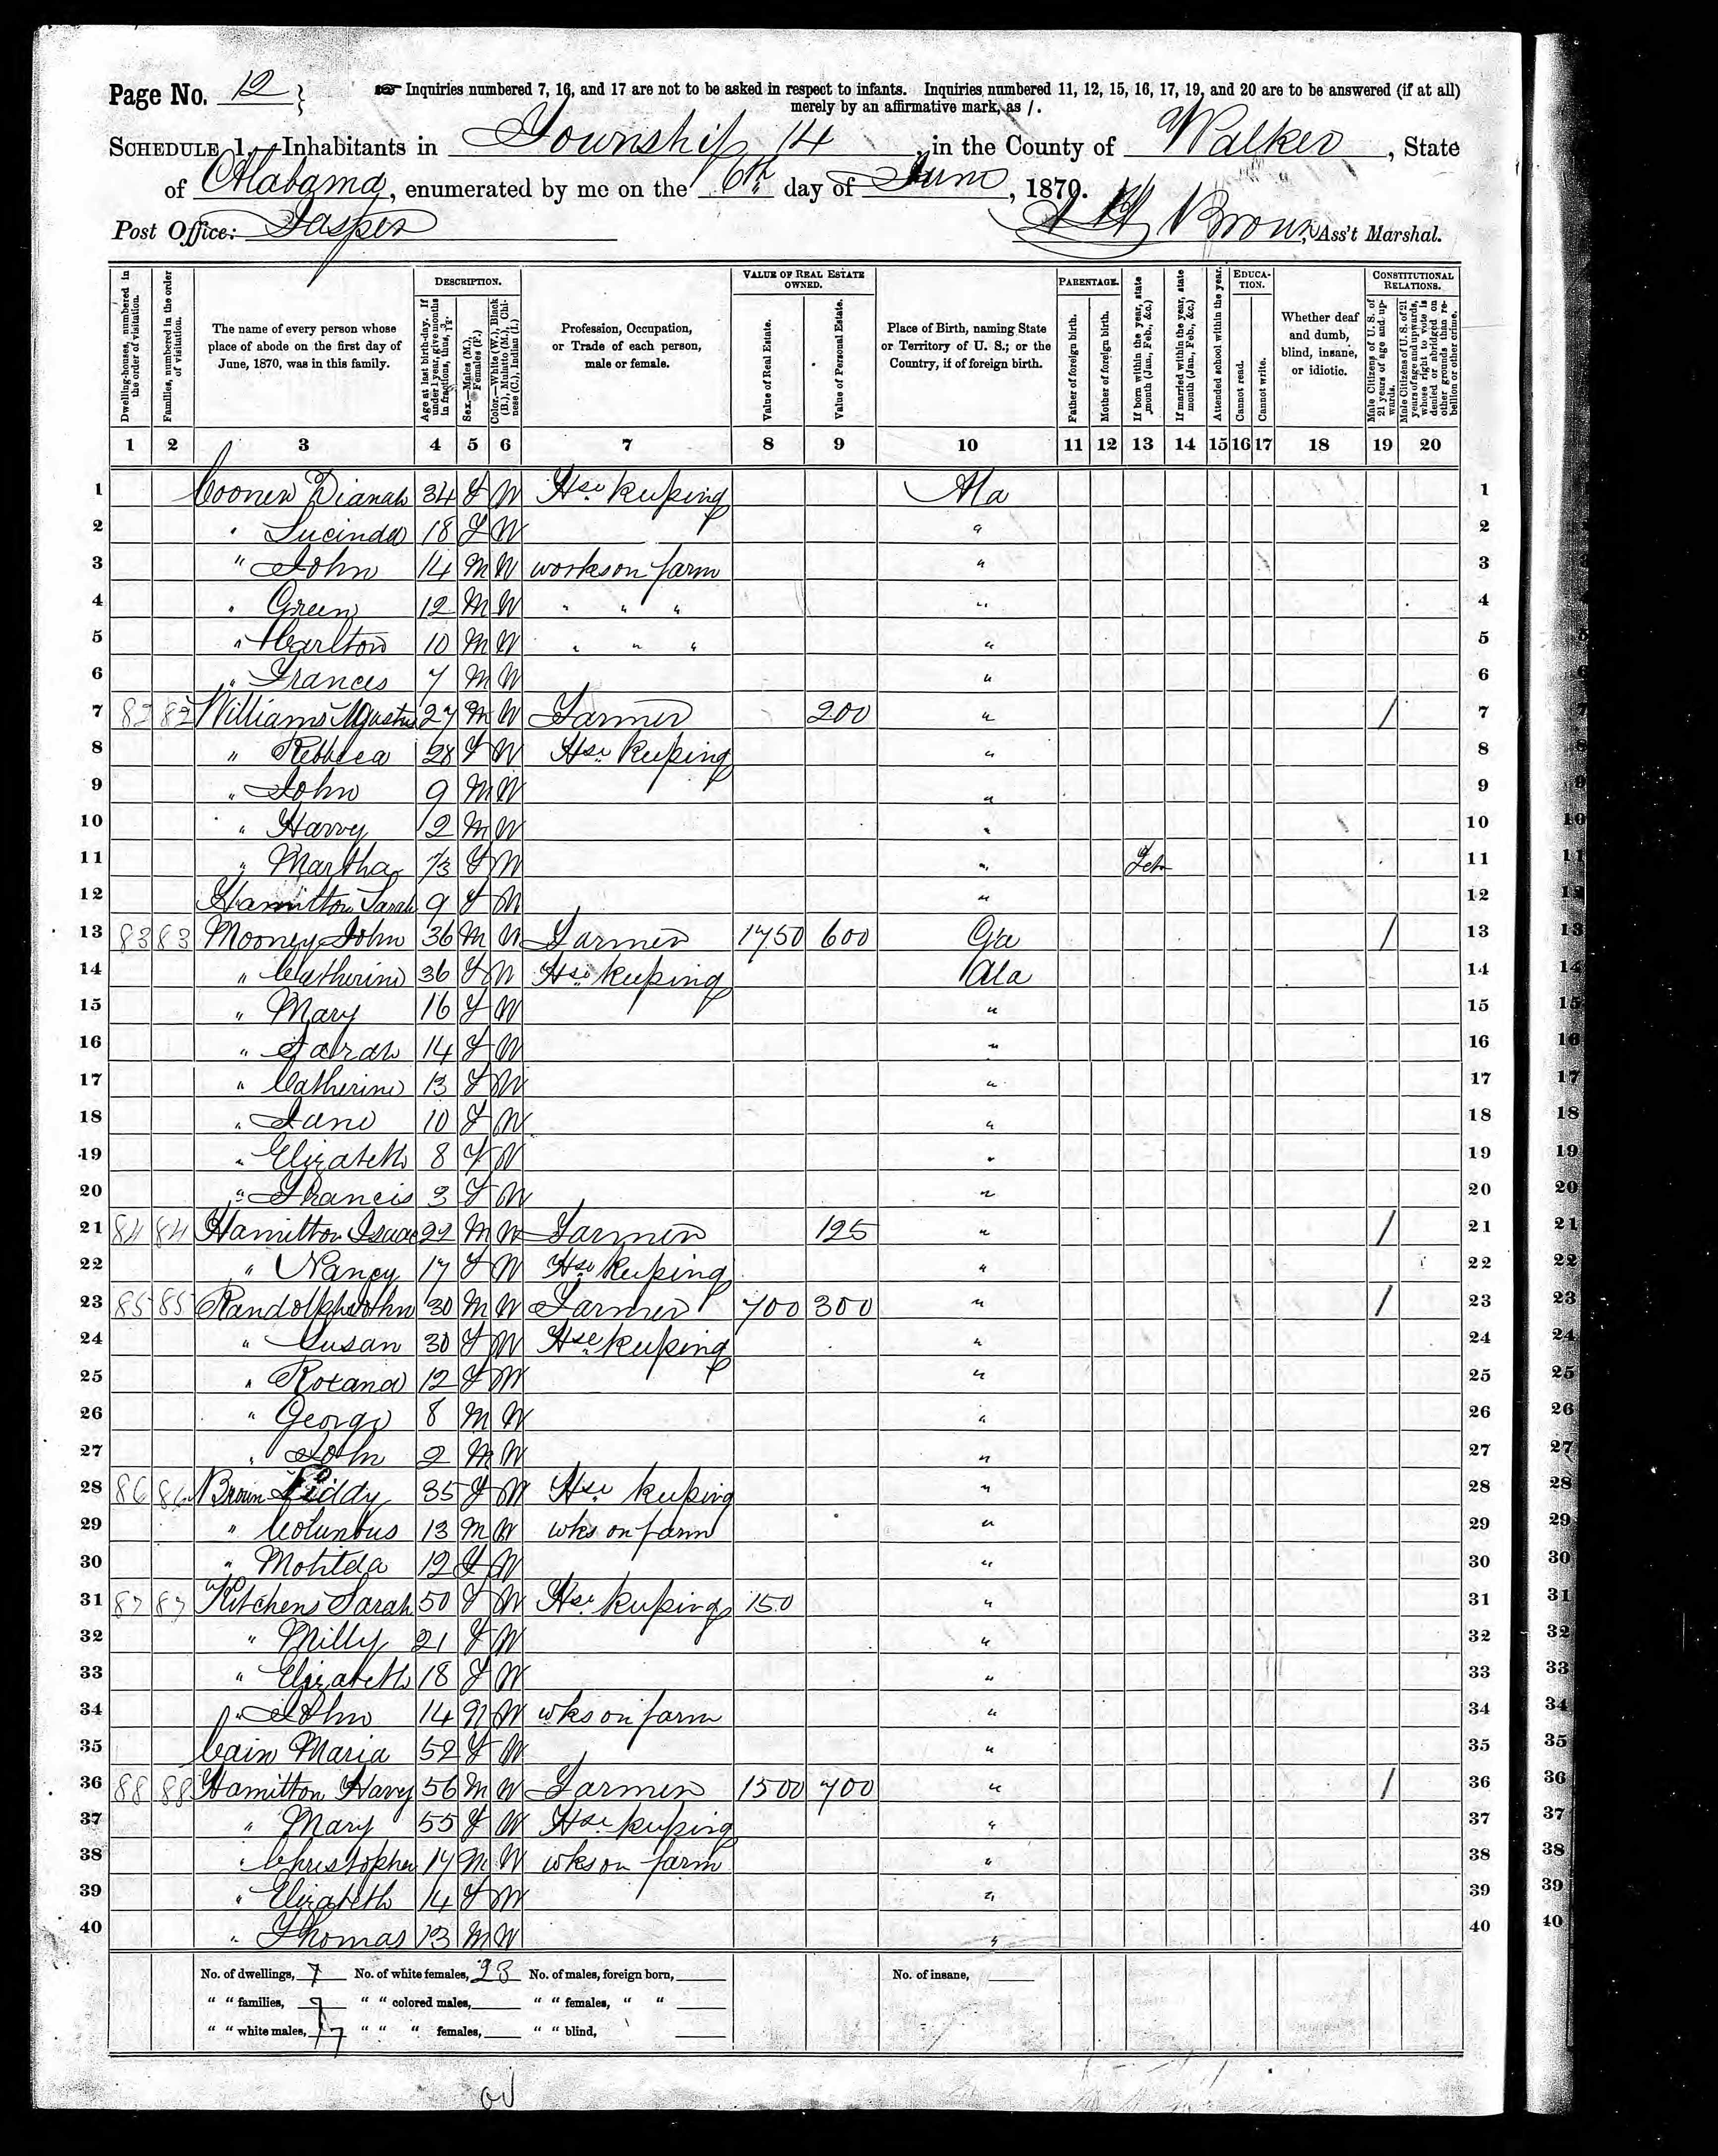 Page No. 12
Inquiries numbered 7, 16, and 17 are not to be asked in respect to infants. Inquiries numbered 11, 12, 15, 16, 17, 19, and 20 are to be answered (if at all)
merely by an affirmative mark, as /.
SCHEDULE 1.—Inhabitants in Township 14, in the County of Walker, State
of Alabama, enumerated by me on the 6th day of June, 1870.
Post Office: Jasper
Brown, Ass't Marshal.
Dwelling-houses, numbered in the order of visitation.
Families, numbered in the order of visitation.
The name of every person whose place of abode on the first day of June, 1870, was in this family.
DESCRIPTION.
Age at last birth-day. If under 1 year, give months in fractions, thus, 3/12.
Sex.—Males (M.), Females (F.)
Color.—White (W.), Black (B.), Mulatto (M.), Chinese (C.), Indian (I.)
Profession, Occupation, or Trade of each person, male or female.
VALUE OF REAL ESTATE OWNED.
Value of Real Estate.
Value of Personal Estate.
Place of Birth, naming State or Territory of U. S.; or the Country, if of foreign birth.
PARENTAGE.
Father of foreign birth.
Mother of foreign birth.
If born within the year, state month (Jan., Feb., &c.)
If married within the year, state month (Jan., Feb., &c.)
Attended school within the year.
EDUCATION.
Cannot read.
Cannot write.
Whether deaf and dumb, blind, insane, or idiotic.
CONSTITUTIONAL RELATIONS.
Male Citizens of U. S. of 21 years of age and upwards.
Male Citizens of U. S. of 21 years of age and upwards, whose right to vote is denied or abridged on other grounds than rebellion or other crime.
1 2 3 4 5 6 7 8 9 10 11 12 13 14 15 16 17 18 19 20
1 Dianah 34 F W Hse keeping Ala 1
2 " Lucinda 18 F W " 2
3 " John 14 M W works on farm " 3
4 " Green 12 M W " " " " 4
5 " Carlton 10 M W " " " " 5
6 " Frances 7 M W " 6
7 82 82 Williams 27 M W Farmer 200 " / 7
8 " Rebbeca 28 F W Hse keeping " 8
9 " John 9 M W " 9
10 " Harvy 2 M W " 10
11 " Martha F W " Feb 11
12 Hamilton Sarah 9 F W " 12
13 83 83 Mooney John 36 M W Farmer 1750 600 Ga / 13
14 " Catherine 36 F W Hse keeping Ala 14
15 " Mary 16 F W " 15
16 " Sarah 14 F W " 16
17 " Catherine 13 F W " 17
18 " Jane 10 F W " 18
19 " Elizabeth 8 F W " 19
20 " Francis 3 F W " 20
21 84 84 Hamilton Isaac 22 M W Farmer 125 " / 21
22 " Nancy 17 F W Hse keeping " 22
23 85 85 Randolph John 30 M W Farmer 700 300 " / 23
24 " Susan 30 F W Hse keeping " 24
25 " Roxana 12 F W " 25
26 " George 8 M W " 26
27 " John 2 M W " 27
28 86 86 Brown Liddy 35 F W Hse keeping " 28
29 " Columbus 13 M W wks on farm " 29
30 " Motilda 12 F W " 30
31 87 87 Kitchens Sarah 50 F W Hse keeping 150 " 31
32 " Milly 21 F W " 32
33 " Elizabeth 18 F W " 33
34 " John 14 M W wks on farm " 34
35 Cain Maria 52 F W " 35
36 88 88 Hamilton Harvy 56 M W Farmer 1500 700 " / 36
37 " Mary 55 F W Hse keeping " 37
38 " Christopher 17 M W wks on farm " 38
39 " Elizabeth 14 F W " 39
40 " Thomas 13 M W " 40
No. of dwellings, 7 No. of white females, 23 No. of males, foreign born, No. of insane,
" " families, " " colored males, " " females, " "
" " white males, 17 " " " females, " " blind,